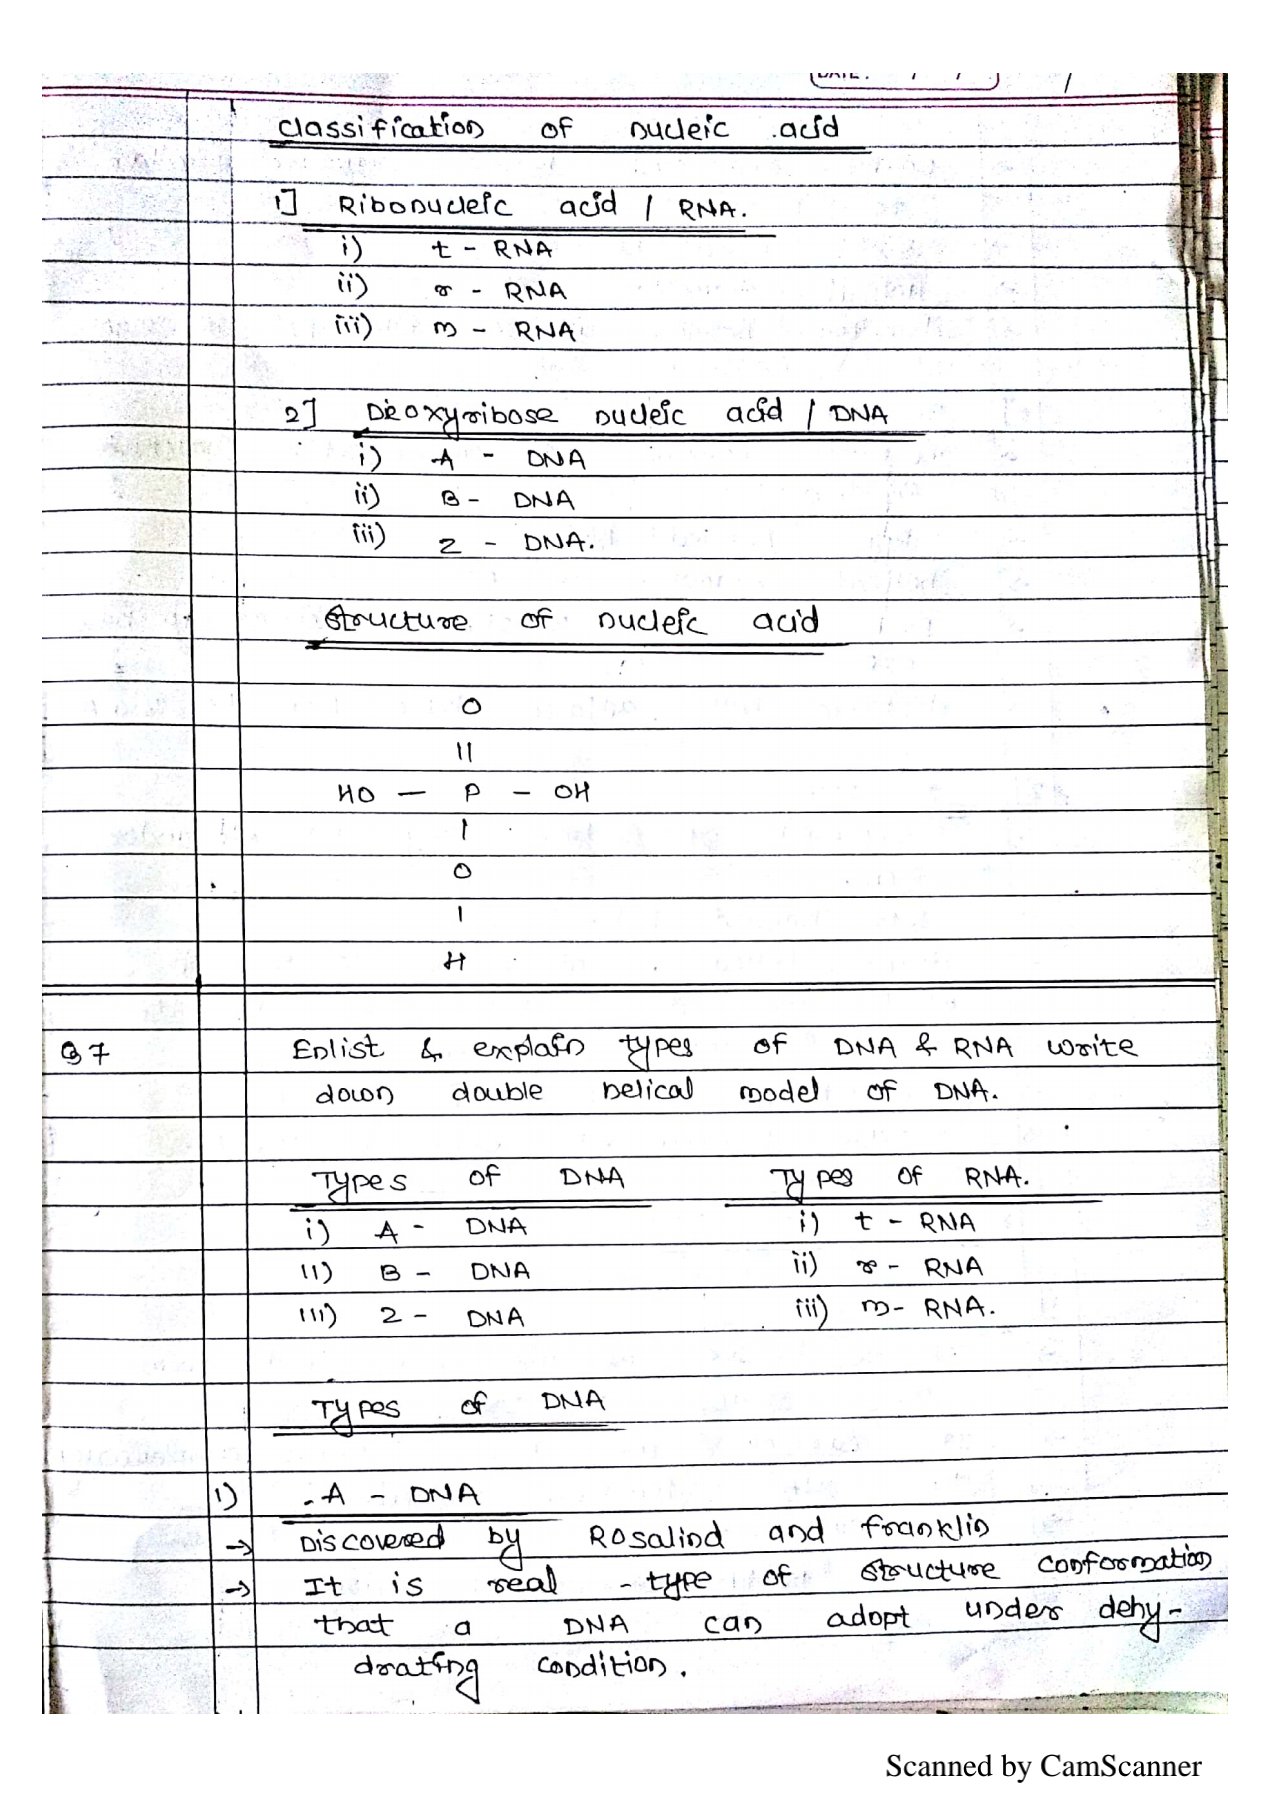 DATE: / /
Classification of nucleic acid
1] Ribonucleic acid / RNA.
i) t - RNA
ii) r - RNA
iii) m - RNA
2] Deoxyribose nucleic acid / DNA
i) A - DNA
ii) B - DNA
iii) Z - DNA.
Structure of nucleic acid
O
||
HO — P — OH
|
O
|
H
Q7 Enlist & explain types of DNA & RNA write
down double helical model of DNA.
Types of DNA Types of RNA.
i) A - DNA i) t - RNA
ii) B - DNA ii) r - RNA
iii) Z - DNA iii) m - RNA.
Types of DNA
1) A - DNA
→ Discovered by Rosalind and franklin
→ It is real - type of structure conformation
that a DNA can adopt under dehy-
drating condition.
Scanned by CamScanner